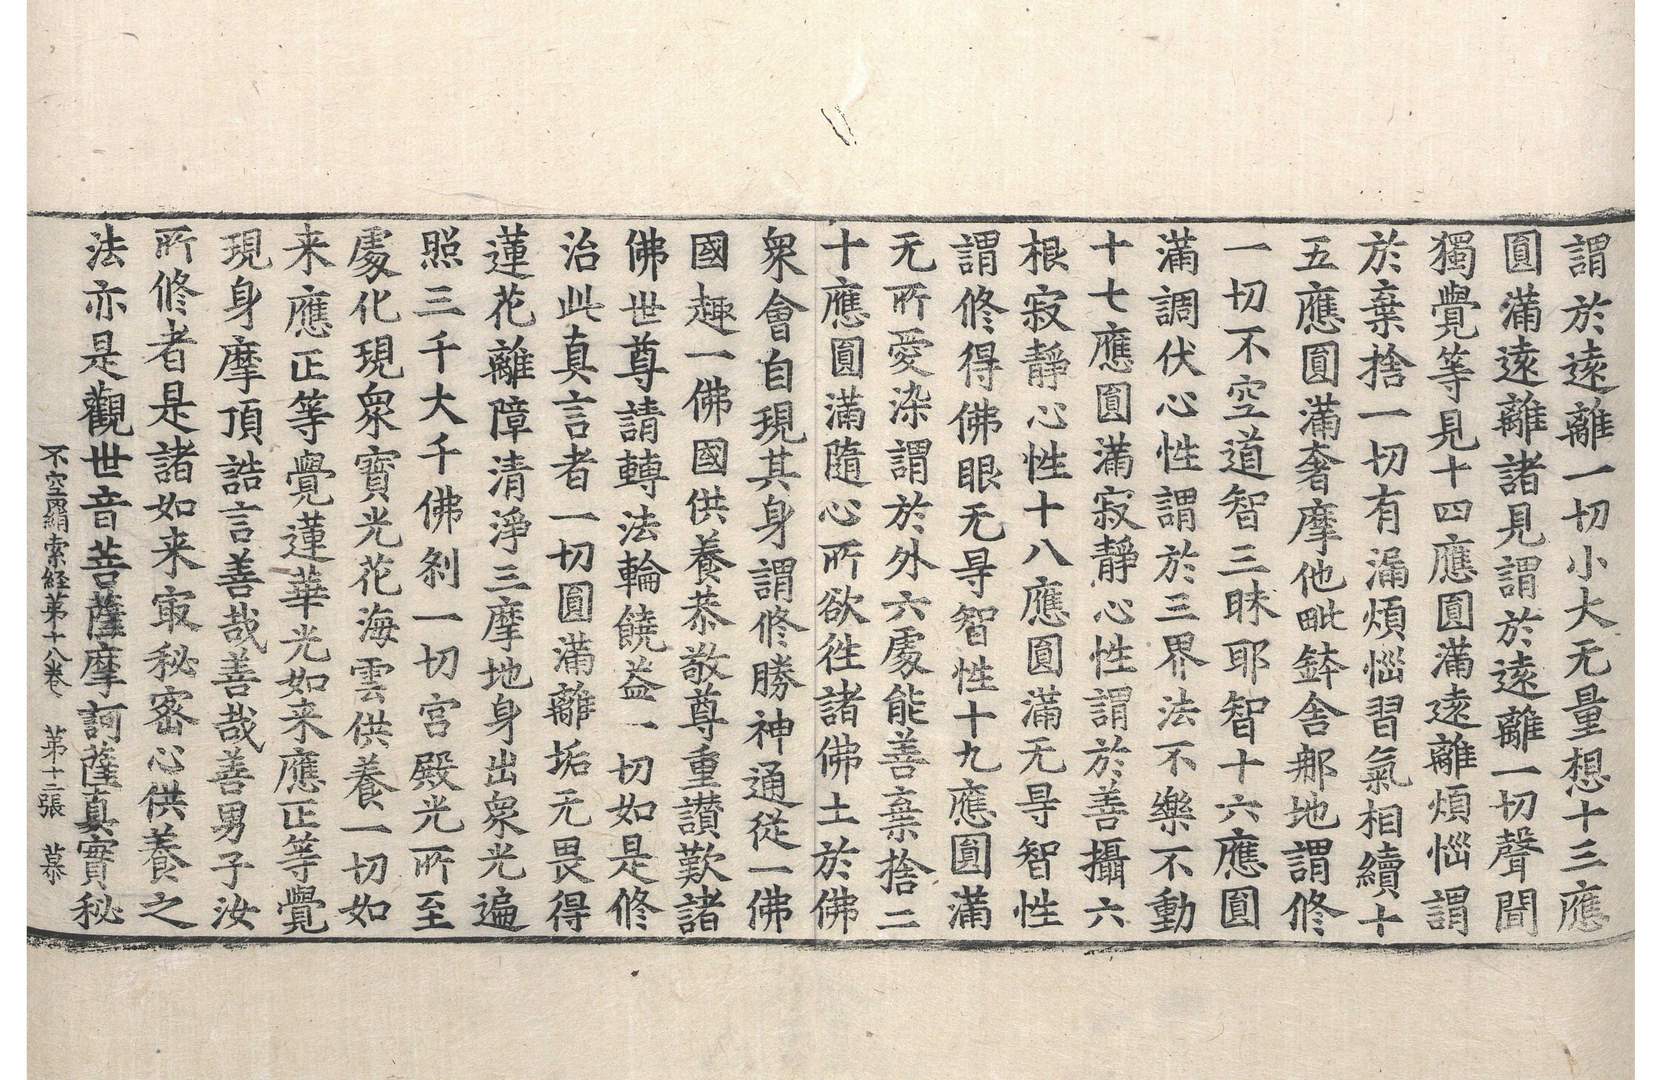 謂於遠離一切小大无量想十三應
圓滿遠離諸見謂於遠離一切聲聞
獨覺等見十四應圓滿遠離煩惱謂
於棄捨一切有漏煩惱習氣相續十
五應圓滿奢摩他毗鉢舍那地謂修
一切不空道智三昧耶智十六應圓
滿調伏心性謂於三界法不樂不動
十七應圓滿寂靜心性謂於善攝六
根寂靜心性十八應圓滿无㝵智性
謂修得佛眼无㝵智性十九應圓滿
无所愛染謂於外六處能善棄捨二
十應圓滿隨心所欲往諸佛土於佛
衆會自現其身謂修勝神通從一佛
國趣一佛國供養恭敬尊重讃歎諸
佛世尊請轉法輪饒益一切如是修
治此真言者一切圓滿離垢无畏得
蓮花離障清淨三摩地身出衆光遍
照三千大千佛刹一切宮殿光所至
處化現衆寶光花海雲供養一切如
来應正等覺蓮華光如来應正等覺
現身摩頂誥言善哉善哉善男子汝
所修者是諸如来㝡秘密心供養之
法亦是觀世音菩薩摩訶薩真實秘
不空羂索経苐十八卷 苐十二張 慕